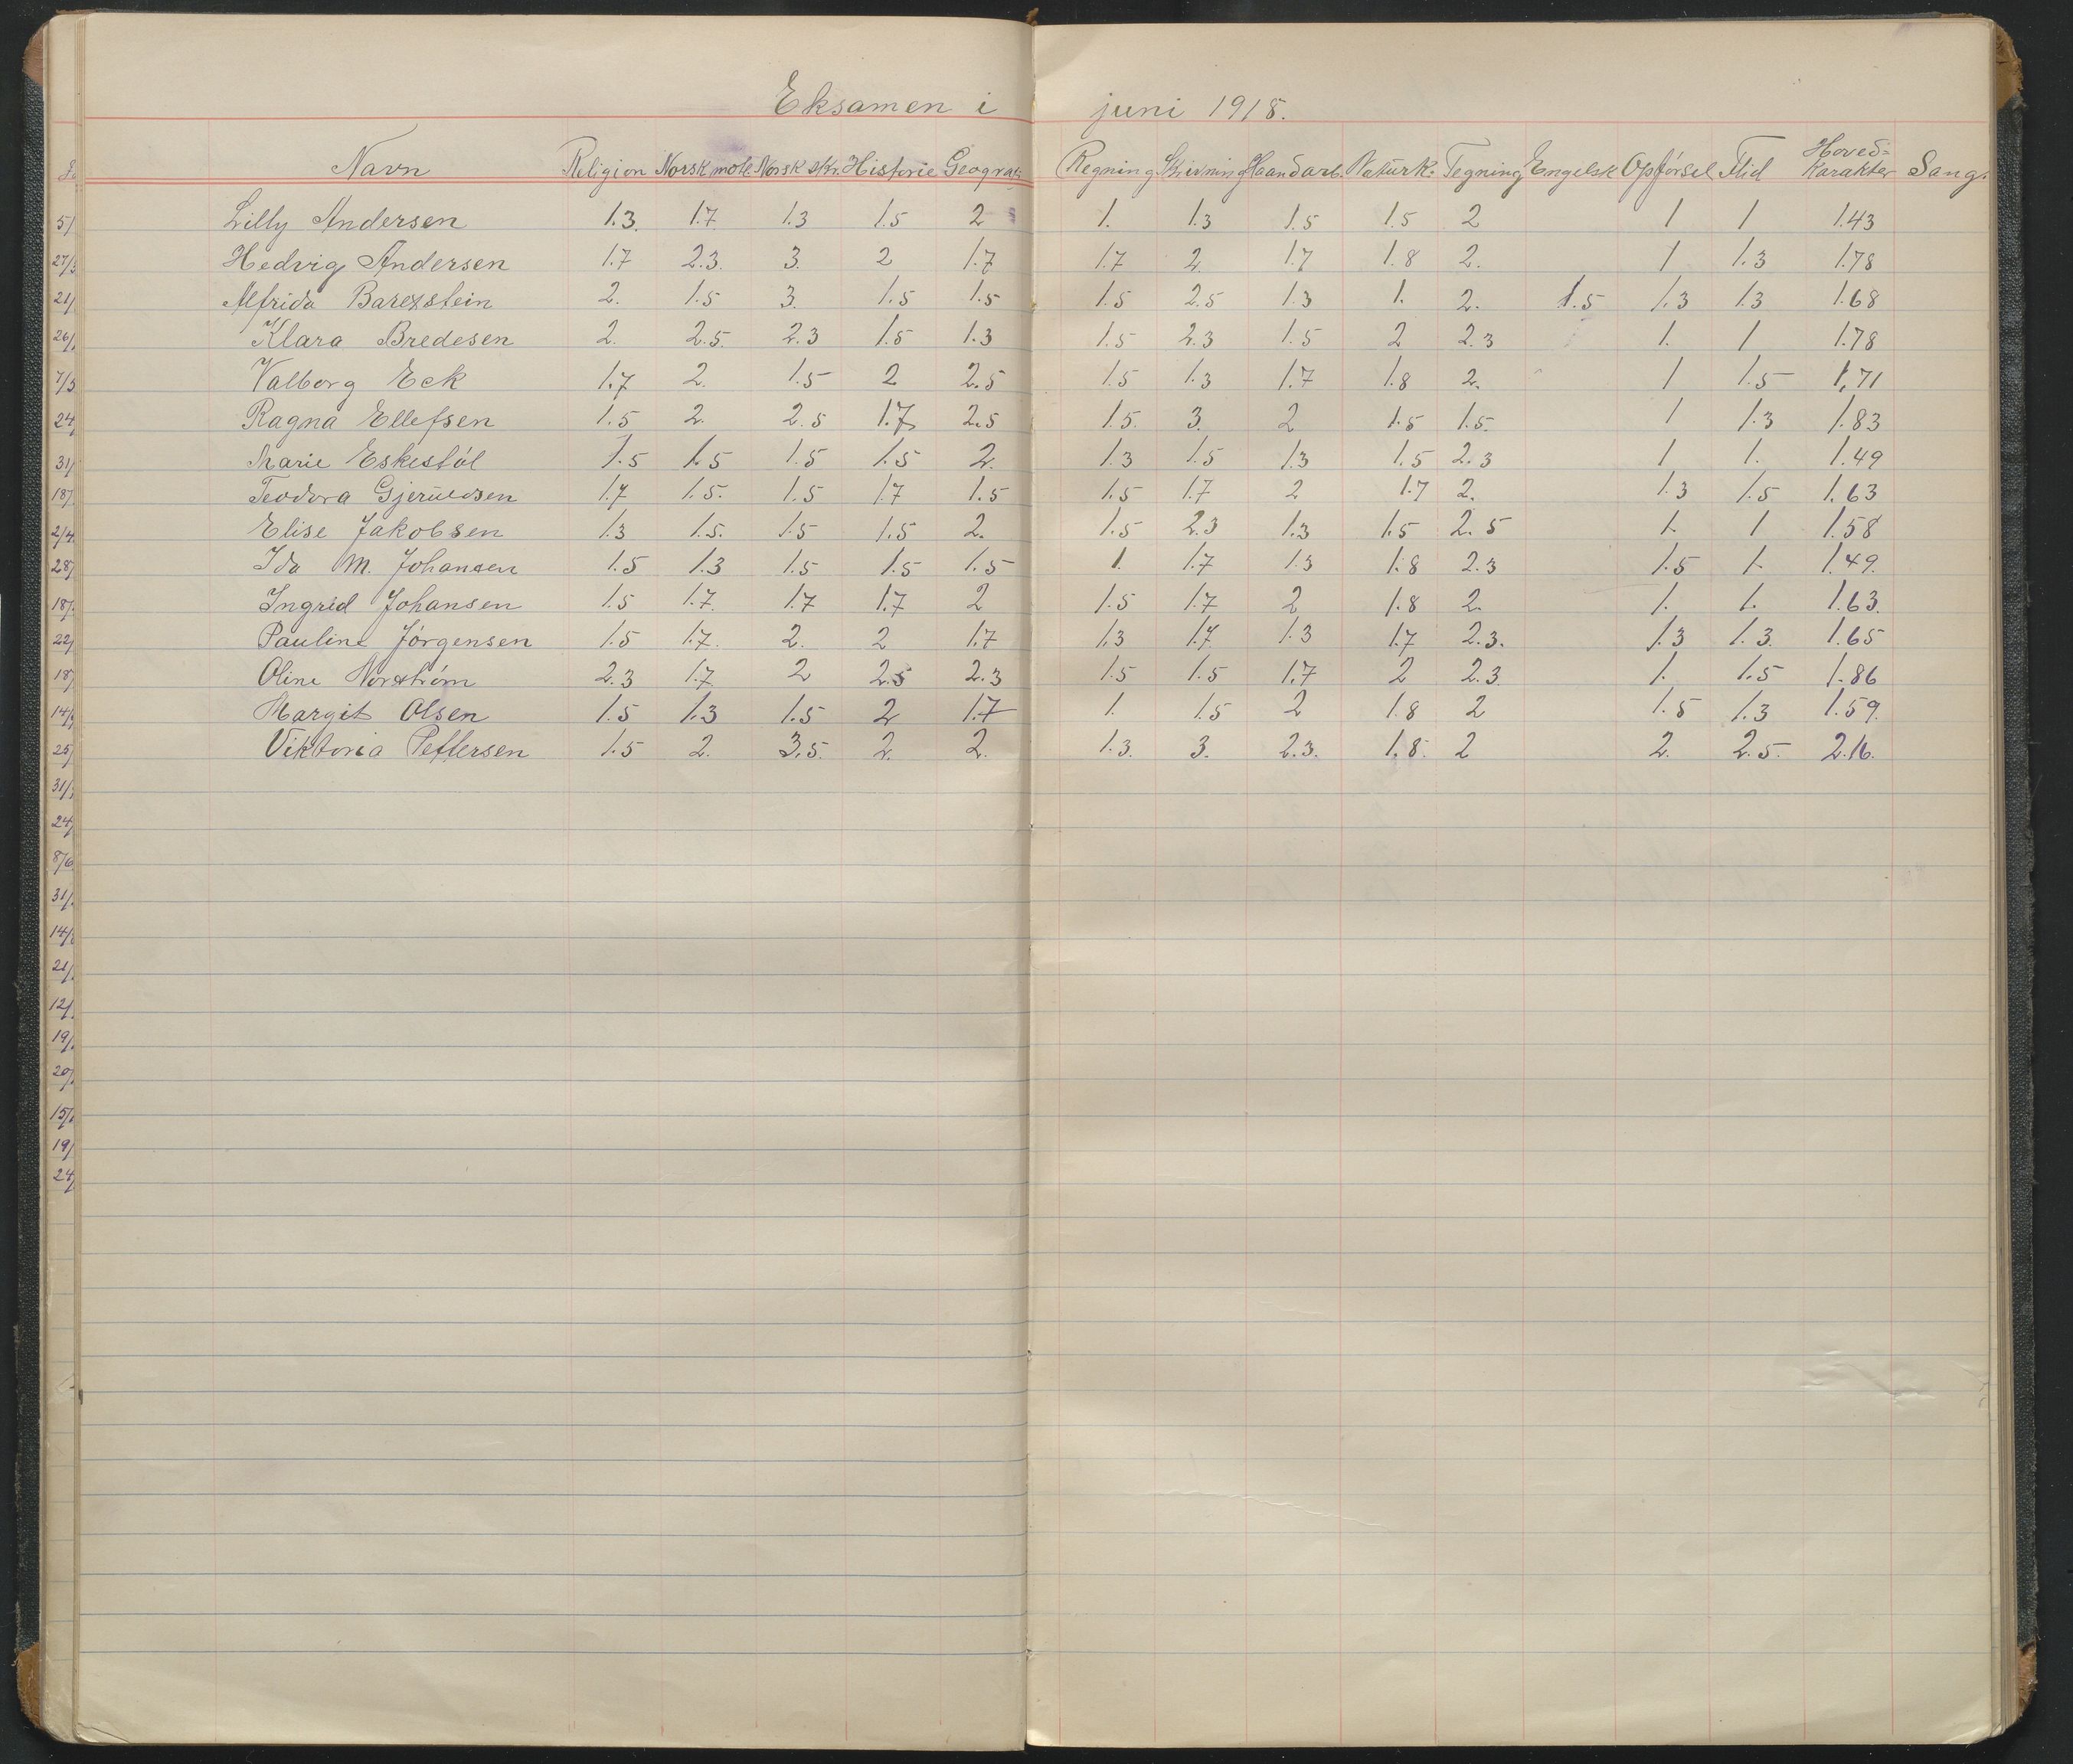 Eksamen i juni 1918.
Navn Religion Norsk mdtl. Norsk skr. Historie Geografi Regning Skrivning Haandarb. Naturk. Tegning Engelsk Opførsel Flid Hoved-karakter Sang.
5/ Lilly Andersen 1.3. 1.7 1.3 1.5 2 1. 1.3 1.5 1.5 2 1 1 1.43
27/3 Hedvig Andersen 1.7 2.3. 3. 2 1.7 1.7 2. 1.7 1.8 2. 1 1.3 1.78
21/ Alfrida Barexstein 2. 1.5 3. 1.5 1.5 1.5 2.5 1.3 1. 2. 1.5 1.3 1.3 1.68
26/ Klara Bredesen 2. 2.5. 2.3 1.5 1.3 1.5 2.3 1.5 2 2.3 1. 1 1.78
7/3 Valborg Eck 1.7 2. 1.5 2 2.5 1.5 1.3 1.7 1.8 2. 1 1.5 1,71
24/ Ragna Ellefsen 1.5 2. 2.5 1.7 2.5 1.5. 3. 2 1.5 1.5. 1 1.3 1.83
31/ Marie Eskestøl 1.5 1.5 1.5 1.5 2. 1.3 1.5 1.3 1.5 2.3 1 1. 1.49
18/ Teodora Gjeruldsen 1.7 1.5. 1.5 1.7 1.5 1.5 1.7 2 1.7 2. 1.3 1.5 1.63
2/4 Elise Jakobsen 1.3 1.5. 1.5 1.5 2. 1.5 2.3 1.3 1.5 2.5 1. 1 1.58
28/ Ida M. Johansen 1.5 1.3 1.5 1.5 1.5 1. 1.7 1.3 1.8 2.3 1.5 1. 1.49.
18/ Ingrid Johansen 1.5 1.7. 1.7 1.7 2 1.5 1.7 2 1.8 2. 1. 1. 1.63.
22/ Pauline Jørgensen 1.5 1.7. 2. 2 1.7 1.3 1.7 1.3 1.7 2.3. 1.3 1.3. 1.65
18/ Oline Norstrøm 2.3 1.7 2 2.5 2.3 1.5 1.5 1.7 2 2.3. 1. 1.5 1.86
14/ Margit Olsen 1.5 1.3 1.5 2 1.7 1. 1.5 2 1.8 2 1.5 1.3 1.59.
25/ Viktoria Pettersen 1.5 2. 3.5. 2. 2. 1.3. 3. 2.3. 1.8. 2 2. 2.5. 2.16.
31/
24/
8/6
31/
14/
21/
12/
19/
20/
15/
19/
24/